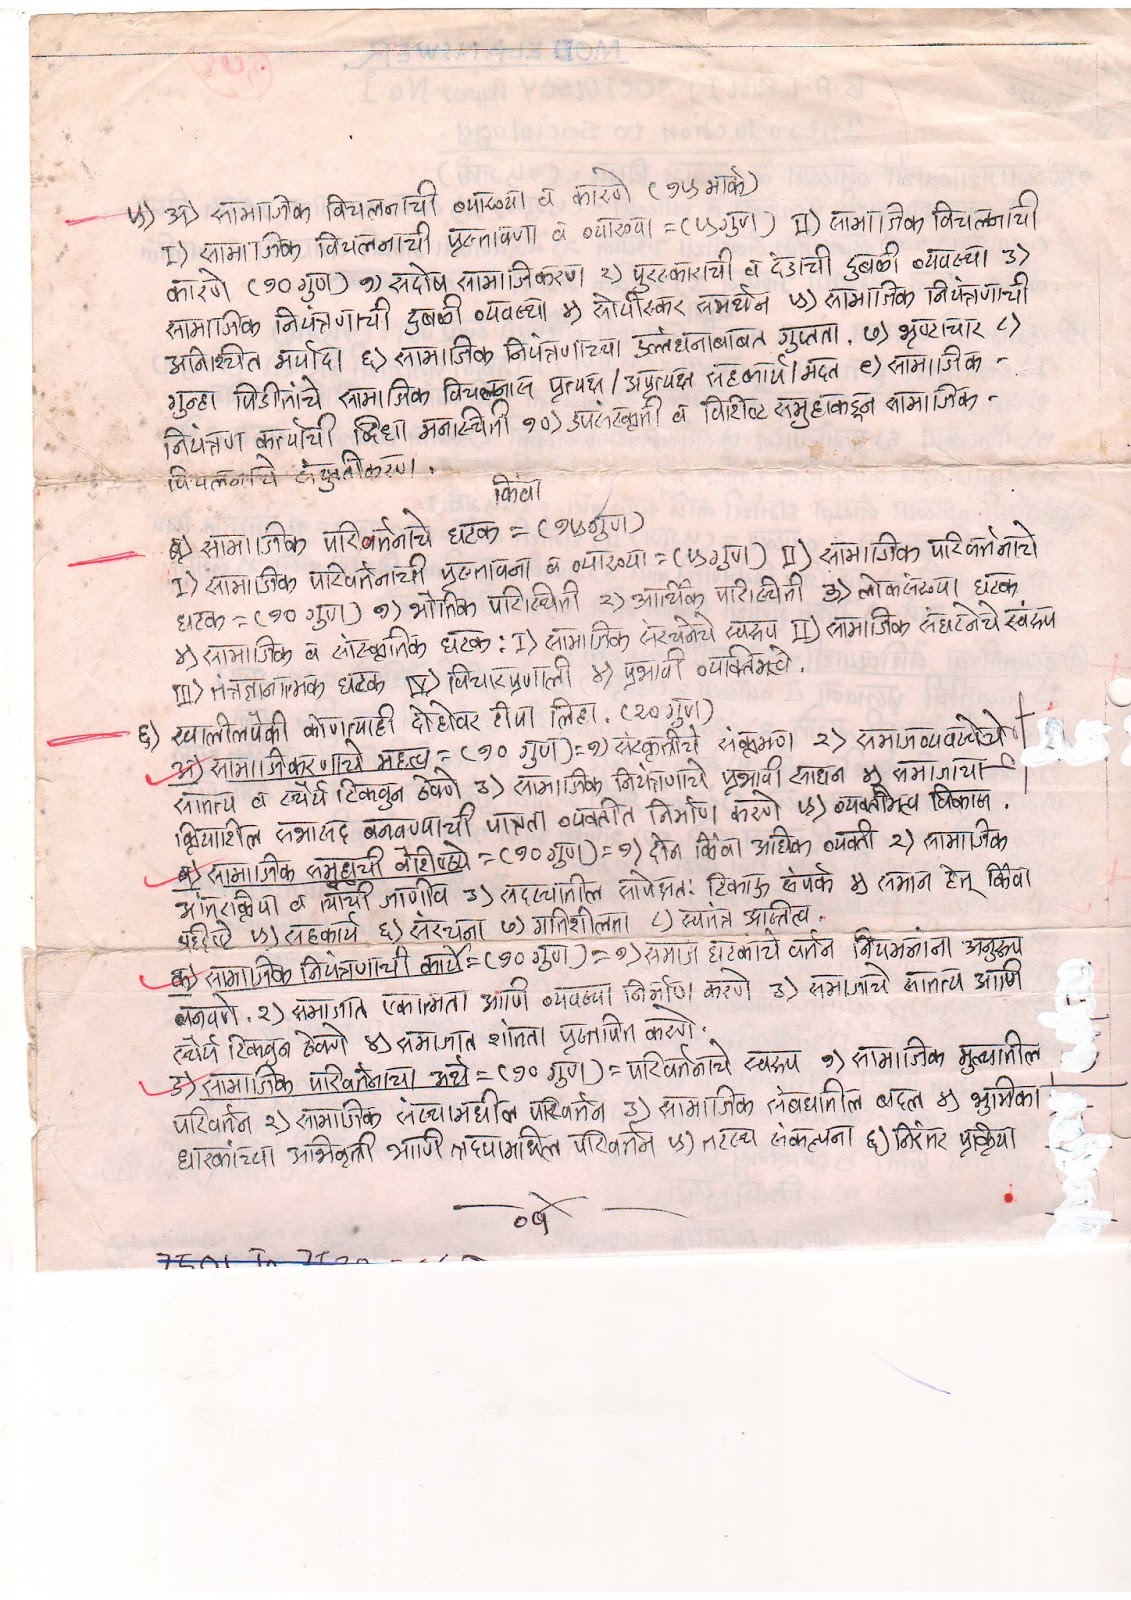 ५) अ) सामाजिक विचलनाची व्याख्या व कारणे (१५ मार्क)
I) सामाजिक विचलनाची प्रस्तावणा व व्याख्या = (५ गुण) II) सामाजिक विचलनाची
कारणे (१० गुण) १) सदोष सामाजिकरण २) पुरस्काराची व दंडाची दुबळी व्यवस्था ३)
सामाजिक नियंत्रणाची दुबळी व्यवस्था ४) सोयीस्कर समर्थन ५) सामाजिक नियंत्रणाची
अनिश्चित मर्यादा ६) सामाजिक नियंत्रणाच्या उल्लंघनाबाबत गुप्तता. ७) भ्रष्टाचार ८)
गुन्हा पिडीतांचे सामाजिक विचलनास प्रत्यक्ष/अप्रत्यक्ष सहकार्य/मदत ९) सामाजिक -
नियंत्रण कर्त्यांची द्विधा मनःस्थिती १०) उपसंस्कृती व विशिष्ट समुहाकडून सामाजिक -
विचलनाचे संयुक्तीकरण.
किंवा
ब) सामाजिक परिवर्तनाचे घटक = (१५ गुण)
I) सामाजिक परिवर्तनाची प्रस्तावना व व्याख्या = (५ गुण) II) सामाजिक परिवर्तनाचे
घटक = (१० गुण) १) भौतिक परिस्थिती २) आर्थिक परिस्थिती ३) लोकसंख्या घटक
४) सामाजिक व सांस्कृतिक घटक : I) सामाजिक संरचनेचे स्वरूप II) सामाजिक संघटनेचे स्वरूप
III) तंत्रज्ञानात्मक घटक IV) विचारप्रणाली ४) प्रभावी व्यक्तिमत्वे.
६) खालीलपैकी कोणत्याही दोहोवर टीपा लिहा. (२० गुण)
अ) सामाजिकरणाचे महत्व = (१० गुण) = १) संस्कृतीचे संक्रमण २) समाजव्यवस्थेचे
सातत्य व स्थैर्य टिकवुन ठेवणे ३) सामाजिक नियंत्रणाचे प्रभावी साधन ४) समाजाचा
क्रियाशील सभासद बनवण्याची पात्रता व्यक्तीत निर्माण करणे ५) व्यक्तीमत्व विकास.
ब) सामाजिक समुहाची वैशिष्ट्ये = (१० गुण) = १) दोन किंवा अधिक व्यक्ती २) सामाजिक
आंतरक्रिया व त्यांची जाणीव ३) सदस्यांतील सापेक्षतः टिकाऊ संपर्क ४) समान हेतू किंवा
उद्दिष्टे ५) सहकार्य ६) संरचना ७) गतिशीलता ८) स्वतंत्र अस्तित्व.
क) सामाजिक नियंत्रणाची कार्ये = (१० गुण) = १) समाज घटकांचे वर्तन नियमनांना अनुरूप
बनवणे. २) समाजात एकात्मता आणि व्यवस्था निर्माण करणे ३) समाजाचे सातत्य आणि
स्थैर्य टिकवुन ठेवणे ४) समाजात शांतता प्रस्तापित करणे.
ड) सामाजिक परिवर्तनाचा अर्थ = (१० गुण) = परिवर्तनाचे स्वरूप १) सामाजिक मुल्यातील
परिवर्तन २) सामाजिक संस्थामधील परिवर्तन ३) सामाजिक संबंधातील बदल ४) भुमिका
धारकांच्या अभिवृत्ती आणि परिवर्तन ५) तटस्थ संकल्पना ६) निरंतर प्रक्रिया